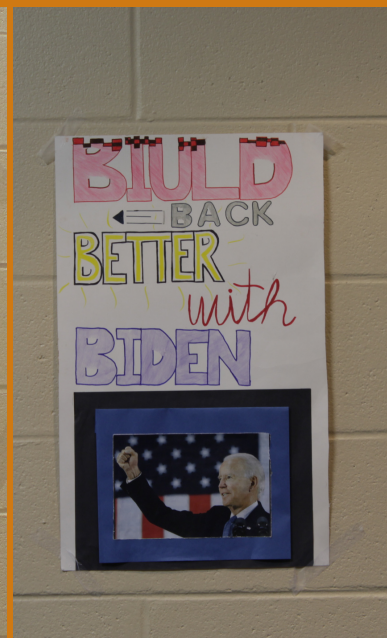 BIULD
BACK
BETTER
with
BIDEN